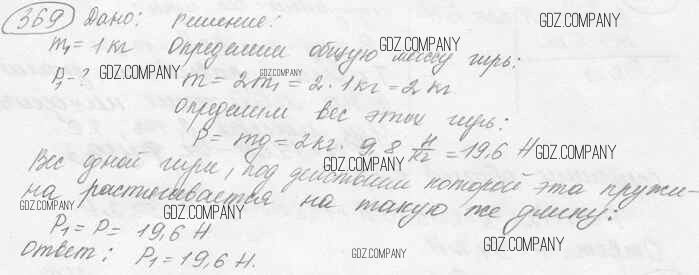 369 Дано: Решение: GDZ.COM
m₁ = 1 кг Определим общую массу гирь: GDZ.COMPANY
P₁ - ? GDZ.COMPANY m = 2m₁ = 2 · 1 кг = 2 кг GDZ.COMPANY
Определим вес этих гирь: GDZ.COMPANY
P = mg = 2 кг · 9,8 Н/кг = 19,6 Н GDZ.COMPANY
Вес одной гири, под действием которой эта пружи- GDZ.COMPANY
на растягивается на такую же длину: GDZ.COMPANY GDZ.COMPANY
P₁ = P = 19,6 Н GDZ.COMPANY
Ответ: P₁ = 19,6 Н. GDZ.COMPANY